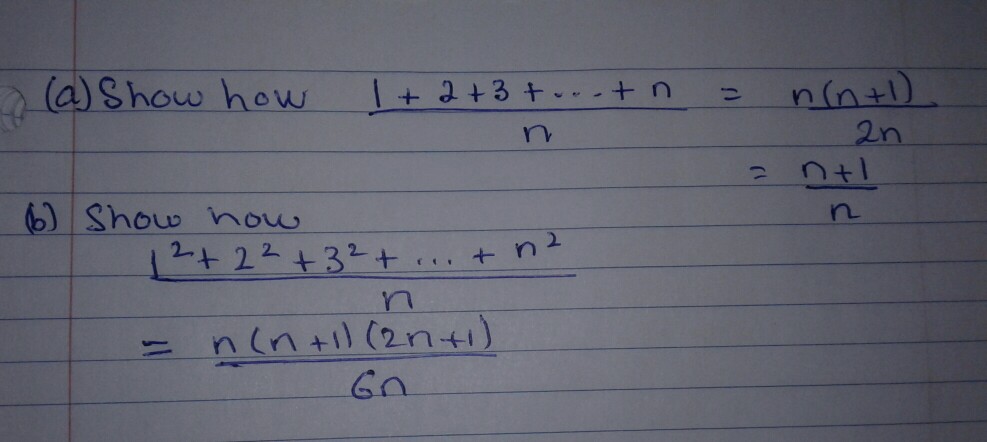 (a) Show how (1 + 2 + 3 + ... + n)/n = n(n+1)/2n
= (n+1)/n
(b) Show how
(1² + 2² + 3² + ... + n²)/n
= n(n+1)(2n+1)/6n